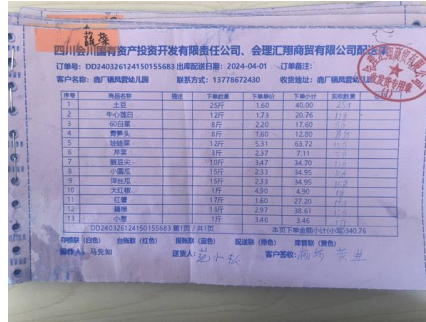 蔬菜
四川会川国有资产投资开发有限责任公司、会理汇翔商贸有限公司配送
订单号: DD240326124150155683 出库配送日期: 2024-04-01 订单备注:
客户名称: 鹿厂镇凤营幼儿园 联系方式: 13778672430 收货地址: 鹿厂镇凤营幼儿园
序号 商品名称 描述 下单数量 下单单价 下单小计 实收数量
1 土豆 25斤 1.60 40.00
2 牛心莲白 12斤 1.73 20.76
3 60白菜 8斤 2.20 17.60
4 青笋头 8斤 1.60 12.80
5 娃娃菜 12斤 5.31 63.72
6 芹菜 3斤 2.37 7.11
7 豌豆尖 10斤 3.47 34.70
8 小南瓜 15斤 2.33 34.95
9 洋丝瓜 15斤 2.33 34.95
10 大红椒 1斤 4.90 4.90
11 红薯 17斤 1.60 27.20
12 13斤 2.97 38.61
13 小葱 1斤 3.46 3.46
DD240326124150155683 第1页 / 共1页 本页下单金额小计(小写):340.76
存根联 (白色) 台账联 (红色) 报账联 (蓝色) 配送联 (绿色) 库管联 (黄色)
操作人: 马先如 送货人: 范小松 客户签收: